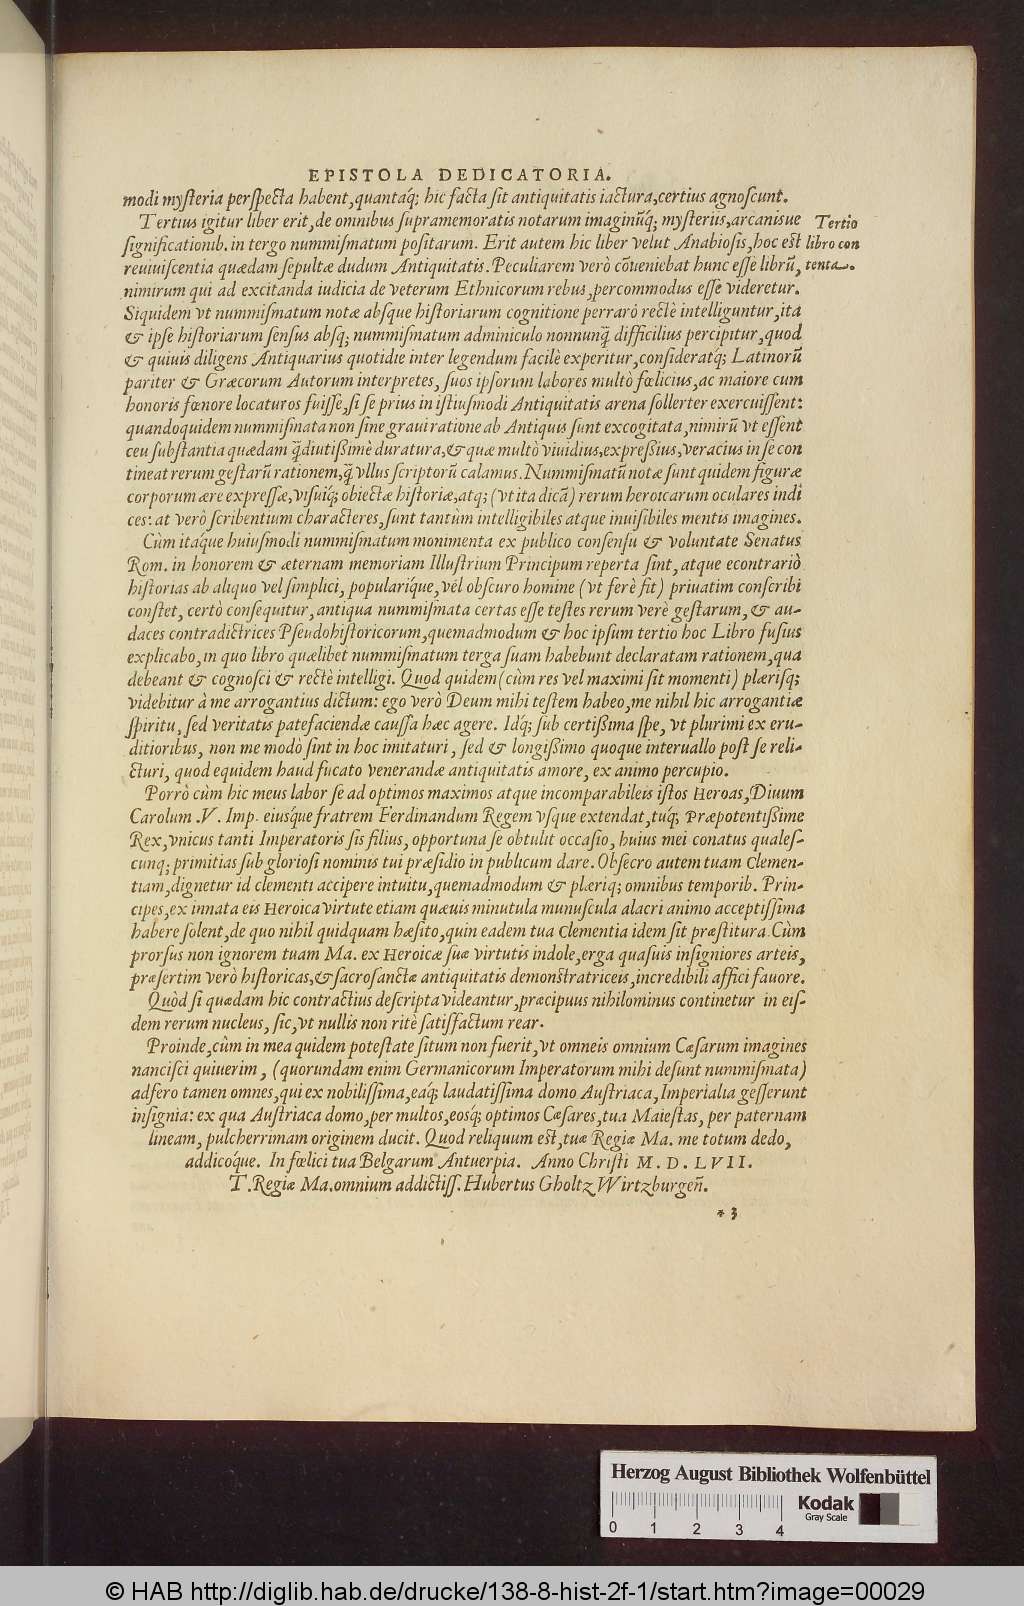 EPISTOLA DEDICATORIA.
modi myſteria perſpecta habent, quantaq́; hic facta ſit antiquitatis iactura, certius agnoſcunt.
Tertius igitur liber erit, de omnibus ſupramemoratis notarum imaginũq́; myſteriis, arcanisue
ſignificationib. in tergo nummiſmatum poſitarum. Erit autem hic liber velut Anabioſis, hoc eſt
reuiuiſcentia quædam ſepultæ dudum Antiquitatis. Peculiarem verò cõueniebat hunc eſſe librũ,
Tertio
libro con
tenta.
nimirum qui ad excitanda iudicia de veterum Ethnicorum rebus, percommodus eſſe videretur.
Siquidem vt nummiſmatum notæ abſque hiſtoriarum cognitione perrarò rectè intelliguntur, ita
& ipſe hiſtoriarum ſenſus abſq; nummiſmatum adminiculo nonnunq̃ difficilius percipitur, quod
& quiuis diligens Antiquarius quotidie inter legendum facilè experitur, conſideratq́; Latinorũ
pariter & Græcorum Autorum interpretes, ſuos ipſorum labores multò fœlicius, ac maiore cum
honoris fœnore locaturos fuiſſe, ſi ſe prius in iſtiuſmodi Antiquitatis arena ſollerter exercuiſſent:
quandoquidem nummiſmata non ſine graui ratione ab Antiquis ſunt excogitata, nimirũ vt eſſent
ceu ſubſtantia quædam q̃ diutiſſimè duratura, & quæ multò viuidius, expreſſius, veracius in ſe con
tineat rerum geſtarũ rationem, q̃ vllus ſcriptorũ calamus. Nummiſmatũ notæ ſunt quidem figuræ
corporum ære expreſſæ, viſuiq́; obiectæ hiſtoriæ, atq; (vt ita dicã) rerum heroicarum oculares indi
ces: at verò ſcribentium characteres, ſunt tantùm intelligibiles atque inuiſibiles mentis imagines.
Cùm itaq́ue huiuſmodi nummiſmatum monimenta ex publico conſenſu & voluntate Senatus
Rom. in honorem & æternam memoriam Illuſtrium Principum reperta ſint, atque econtrariò
hiſtorias ab aliquo vel ſimplici, populariq́ue, vel obſcuro homine (vt ferè fit) priuatim conſcribi
conſtet, certò conſequitur, antiqua nummiſmata certas eſſe teſtes rerum verè geſtarum, & au-
daces contradictrices Pſeudohiſtoricorum, quemadmodum & hoc ipſum tertio hoc Libro fuſius
explicabo, in quo libro quælibet nummiſmatum terga ſuam habebunt declaratam rationem, qua
debeant & cognoſci & rectè intelligi. Quod quidem (cùm res vel maximi ſit momenti) plæriſq;
videbitur à me arrogantius dictum: ego verò Deum mihi teſtem habeo, me nihil hic arrogantiæ
ſpiritu, ſed veritatis patefaciendæ cauſſa hæc agere. Idq́; ſub certiſſima ſpe, vt plurimi ex eru-
ditioribus, non me modò ſint in hoc imitaturi, ſed & longiſſimo quoque interuallo poſt ſe reli-
cturi, quod equidem haud fucato venerandæ antiquitatis amore, ex animo percupio.
Porrò cùm hic meus labor ſe ad optimos maximos atque incomparabileis iſtos Heroas, Diuum
Carolum .V. Imp. eiusq́ue fratrem Ferdinandum Regem vſque extendat, tuq́; Præpotentiſſime
Rex, vnicus tanti Imperatoris ſis filius, opportuna ſe obtulit occaſio, huius mei conatus qualeſ-
cunq; primitias ſub glorioſi nominis tui præſidio in publicum dare. Obſecro autem tuam Clemen-
tiam, dignetur id clementi accipere intuitu, quemadmodum & plæriq; omnibus temporib. Prin-
cipes, ex innata eis Heroica virtute etiam quæuis minutula munuſcula alacri animo acceptiſſima
habere ſolent, de quo nihil quidquam hæſito, quin eadem tua Clementia idem ſit præſtitura. Cùm
prorſus non ignorem tuam Ma. ex Heroicæ ſuæ virtutis indole, erga quaſuis inſigniores arteis,
præſertim verò hiſtoricas, & ſacroſanctæ antiquitatis demonſtratriceis, incredibili affici fauore.
Quòd ſi quædam hic contractius deſcripta videantur, præcipuus nihilominus continetur in eiſ-
dem rerum nucleus, ſic, vt nullis non ritè ſatiſfactum rear.
Proinde, cùm in mea quidem poteſtate ſitum non fuerit, vt omneis omnium Cæſarum imagines
nanciſci quiuerim, (quorundam enim Germanicorum Imperatorum mihi deſunt nummiſmata)
adfero tamen omnes, qui ex nobiliſſima, eaq́; laudatiſſima domo Auſtriaca, Imperialia geſſerunt
inſignia: ex qua Auſtriaca domo, per multos, eoſq́; optimos Cæſares, tua Maieſtas, per paternam
lineam, pulcherrimam originem ducit. Quod reliquum eſt, tuæ Regiæ Ma. me totum dedo,
addicoq́ue. In fœlici tua Belgarum Antuerpia. Anno Chriſti M. D. LVII.
T. Regiæ Ma. omnium addictiſſ. Hubertus Gholtz Wirtzburgeñ.
* 3
Herzog August Bibliothek Wolfenbüttel
Kodak
Gray Scale
0 1 2 3 4
© HAB http://diglib.hab.de/drucke/138-8-hist-2f-1/start.htm?image=00029